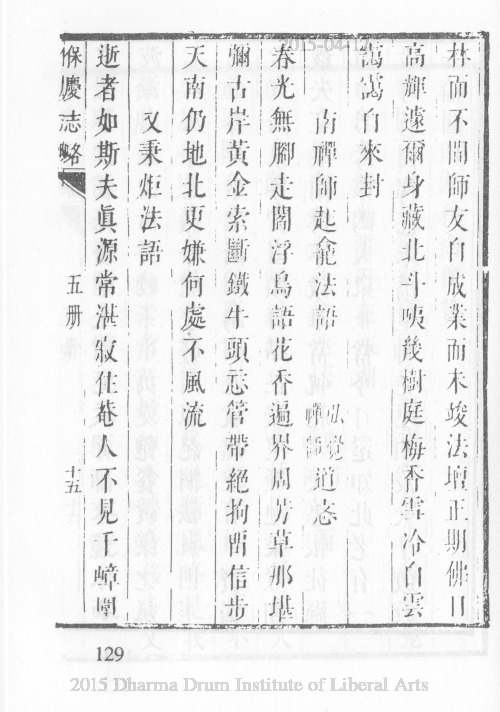 2015-04-17
林而不聞師友自成業而未竣法壇正期佛日
高輝遽爾身藏北斗咦幾樹庭梅香雪冷白雲
靄靄自來封
南禪師起龕法語 弘覺禪師道忞
春光無腳走閻浮鳥語花香遍界周芳草那堪
彌古岸黃金索斷鐵牛頭忘管帶絕拘留信步
天南仍地北更嫌何處不風流
又秉炬法語
逝者如斯夫真源常湛寂住菴人不見千嶂圍
保慶志略 五册 十五
129
2015 Dharma Drum Institute of Liberal Arts